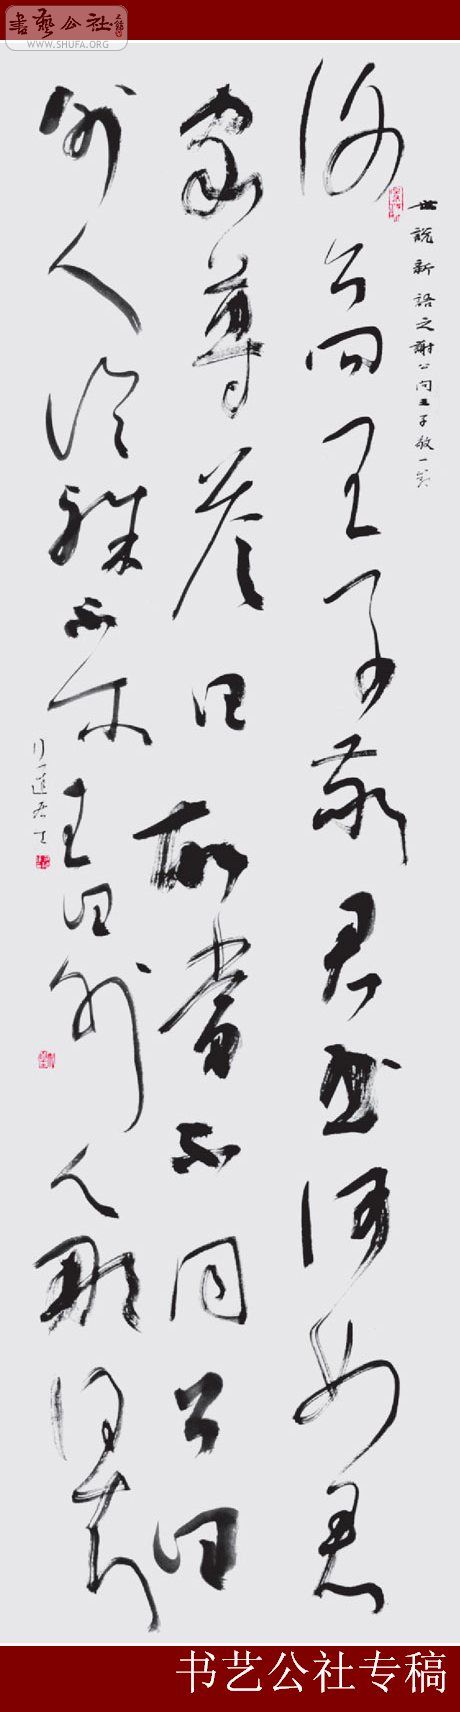 書藝公社
WWW.SHUFA.ORG
世說新語之謝公问王子敬一则
谢公问王子敬君书何如君
家尊答曰故当不同公曰
外人论殊不尔王曰外人那得知
书艺公社专稿